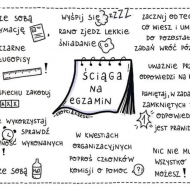 ZE SOBĄ
RMACJĘ,
CZARNE
UGOPISY
ŚPIECHU ZAKODUJ
WYKORZYSTAJ
SPRAWDŹ
ZE SOBĄ
WODĘ
WYŚPIJ SIĘ
ZZZZ
RANO ZJEDZ LEKKIE
ŚNIADANIE
ŚCIĄGA
NA
EGZAMIN
W KWESTIACH
ORGANIZACYJNYCH
POPROŚ CZŁONKÓW
KOMISJI O POMOC ?
ZACZNIJ OD TE
CO WIESZ I UM
DO POZOSTA
ZADAŃ WRÓĆ PÓŹ
UWAŻNIE PRZ
ODPOWIEDZI NA K
PAMIĘTAJ, W ZADA
ZAMKNIĘTYCH
ODPOWIEDŹ
JEST PRAWID
NIC NIE MU
WSZYSTKO
MOŻESZ!